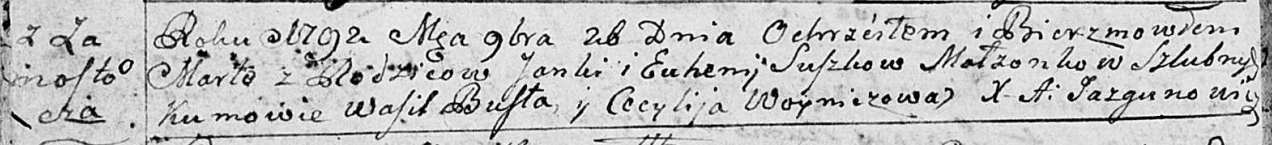 z Za
mosto
cza.
Roku 1792 Mca 9bra 26 Dnia Ochrzciłem i Bierzmowałem
Martę z Rodzicow Janki i Euhenij Suszkow Małżonkow Szlubnych
Kumowie Wasil Busła, y Cecylija Woyniczowa X. A: Jazgunowicz